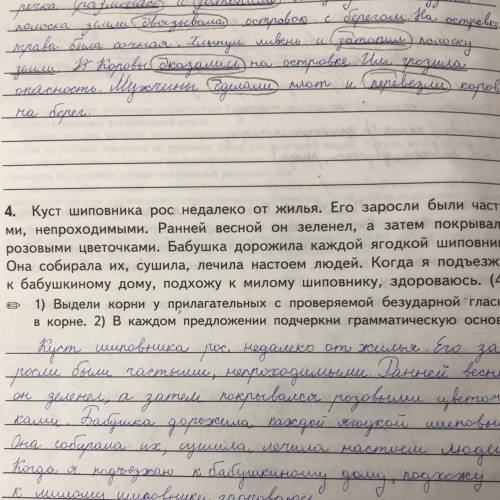 речка разлилась и затопила
полоска земли связывала островок с берегом. На островке
трава была сочная. Хлынул ливень и затопил полоску
земли. Коровы оказались на островке. Им грозила
опасность. Мужчины сделали плот и перевезли коров
на берег.
4. Куст шиповника рос недалеко от жилья. Его заросли были часты
ми, непроходимыми. Ранней весной он зеленел, а затем покрывал
розовыми цветочками. Бабушка дорожила каждой ягодкой шиповни
Она собирала их, сушила, лечила настоем людей. Когда я подъезж
к бабушкиному дому, подхожу к милому шиповнику, здороваюсь. (4
✏ 1) Выдели корни у прилагательных с проверяемой безударной глас
в корне. 2) В каждом предложении подчеркни грамматическую основ
Куст шиповника рос недалеко от жилья. Его за
росли были частыми, непроходимыми. Ранней весно
он зеленел, а затем покрывался розовыми цветоч
ками. Бабушка дорожила каждой ягодкой шиповни
Она собирала их, сушила, лечила настоем людей
Когда я подъезжаю к бабушкиному дому, подхожу
к милому шиповнику, здороваюсь